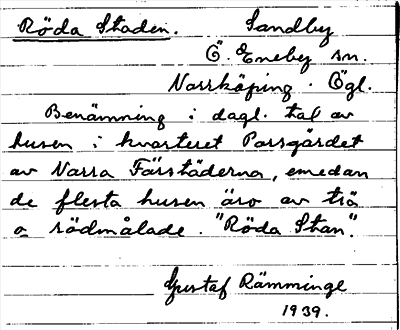 Röda Staden. Sandby
Ö. Eneby sn.
Norrköping. Ögl.
Benämning i dagl. tal av
husen i kvarteret Porsgärdet
av Norra Förstäderna, emedan
de flesta husen äro av trä
o rödmålade. "Röda Stan".
Gustaf Rämminge
1939.